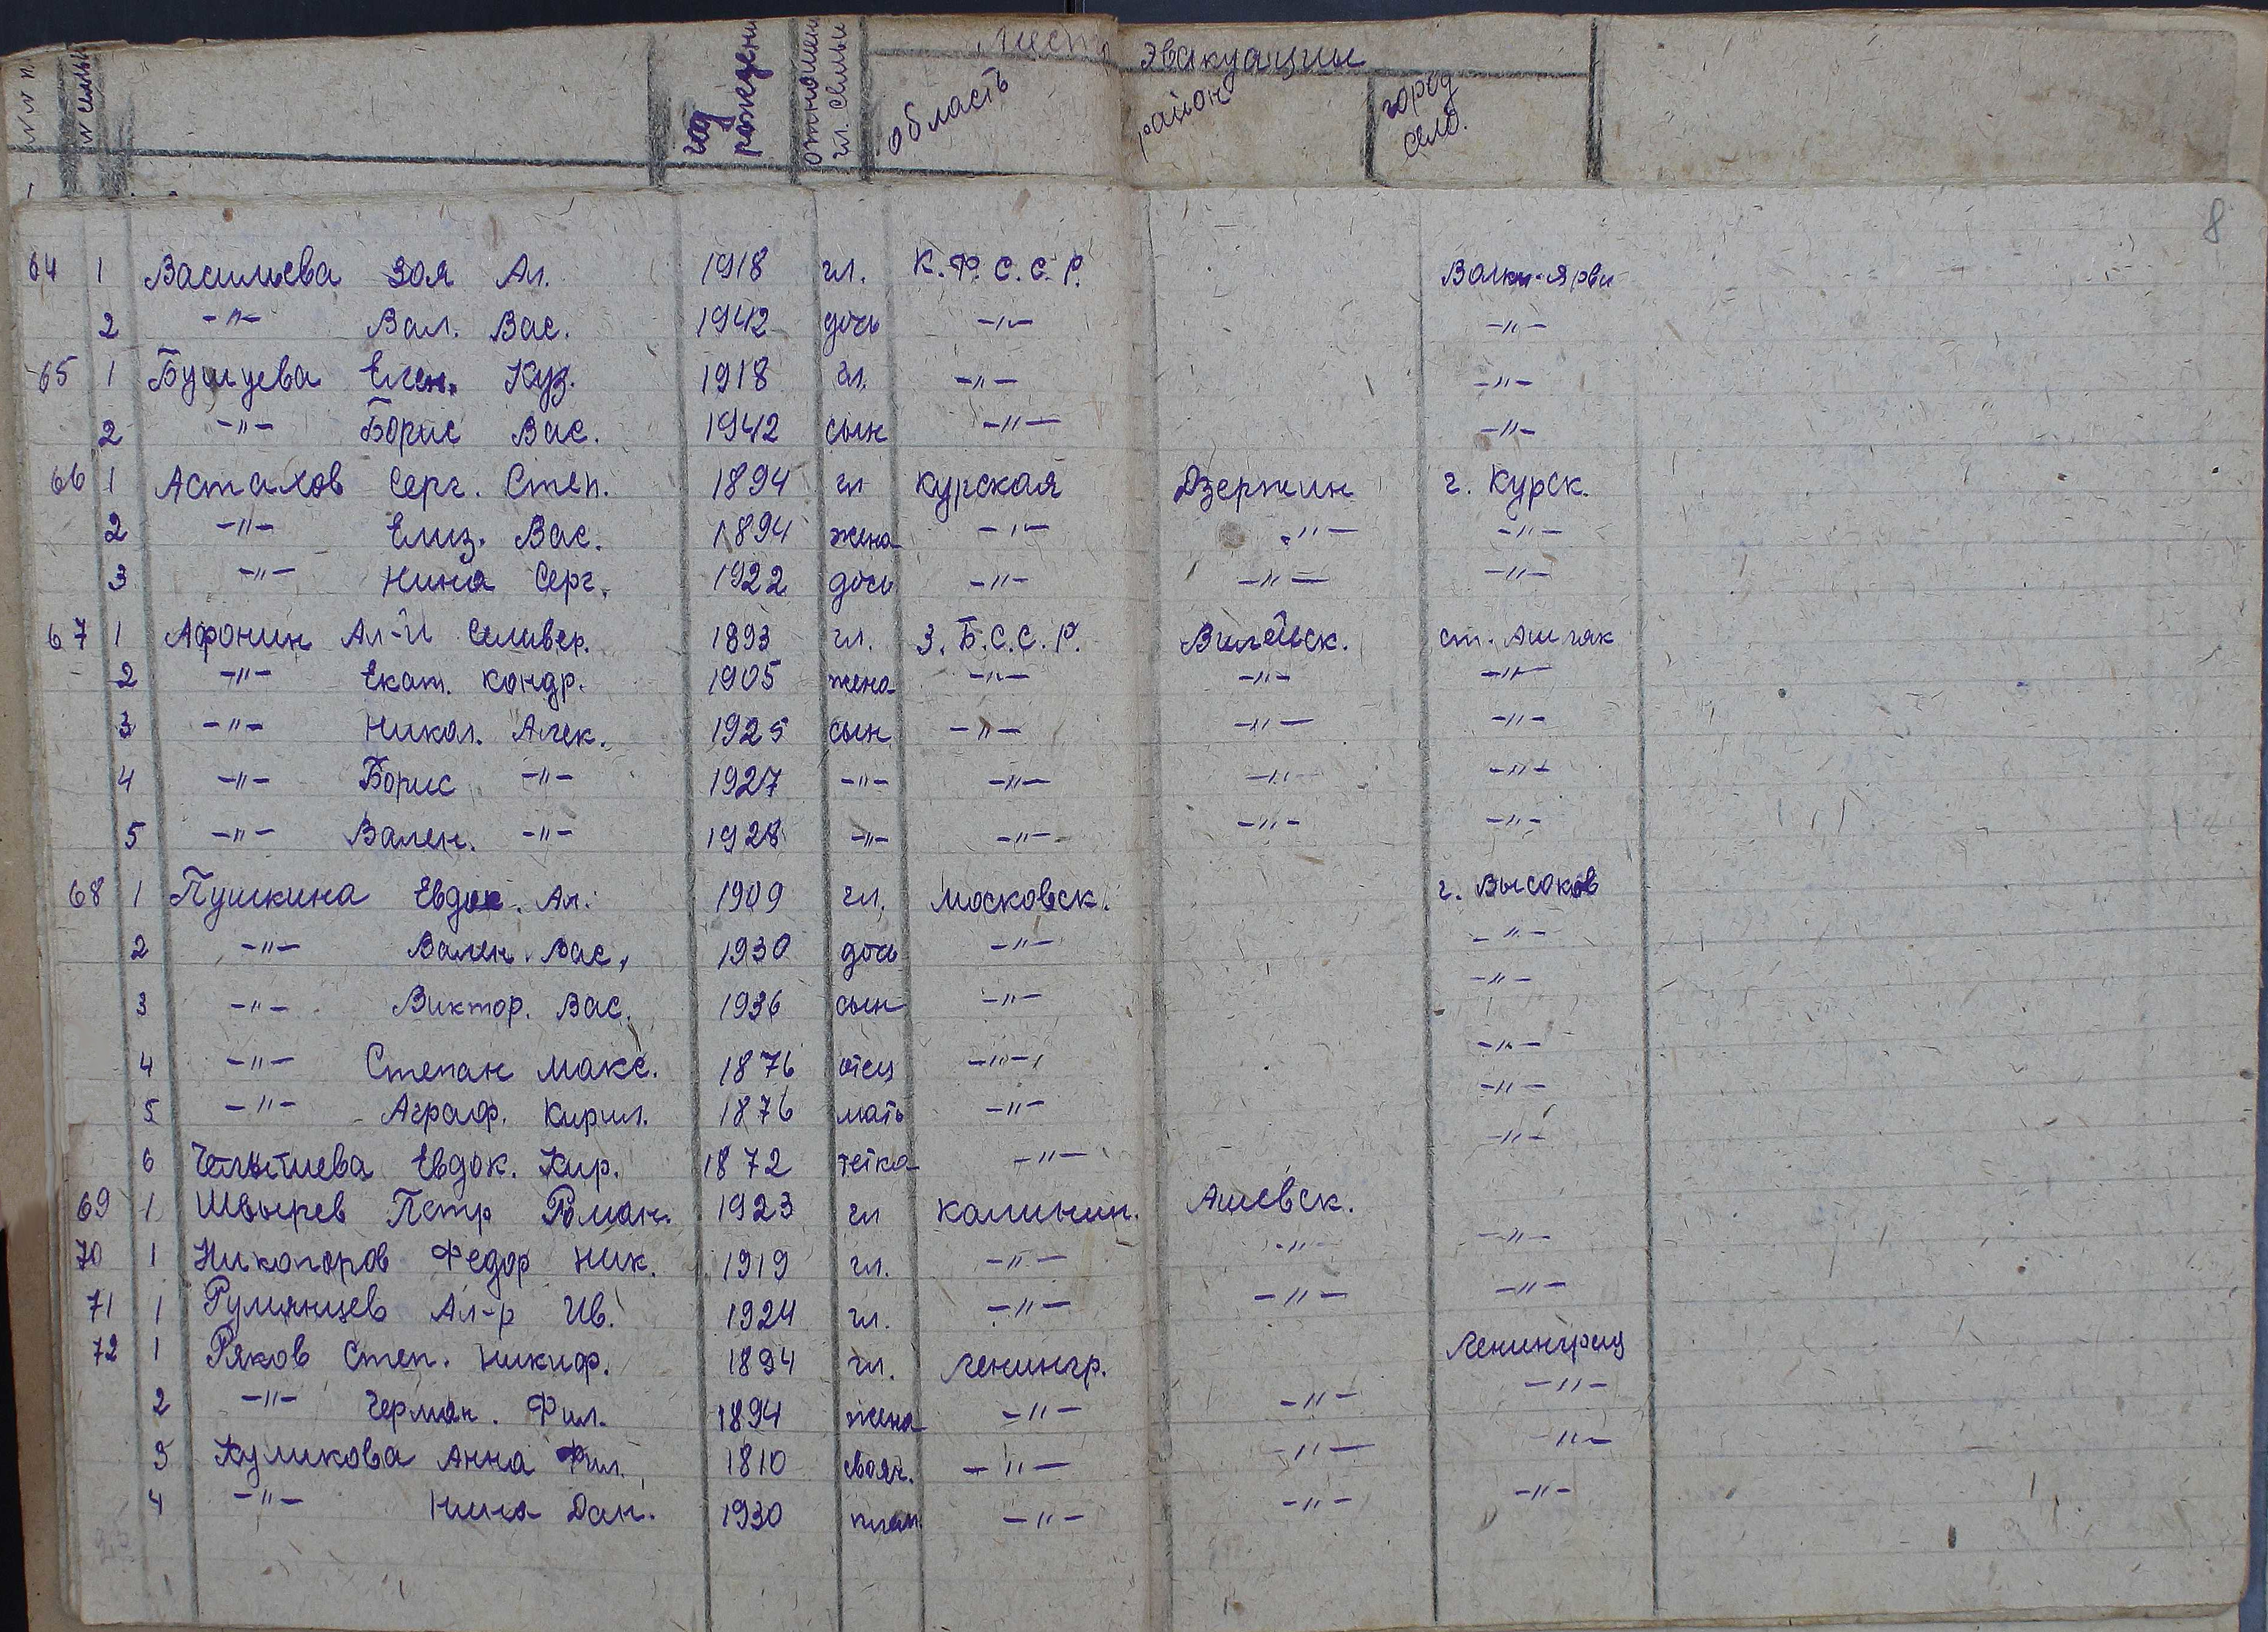 № № п. № семьи год рождени отношен гл. семьи область мест эвакуации район город село.
8
64 1 Васильева Зоя Ал. 1918 гл. К.Ф.С.С.Р. Валки-Ярви
2 -"- Вал. Вас. 1942 дочь -"- -"-
65 1 Бушуева Елен. Куз. 1918 гл. -"- -"-
2 -"- Борис Вас. 1942 сын -"- -"-
66 1 Астахов Серг. Степ. 1894 гл Курская Дзержин г. Курск.
2 -"- Елиз. Вас. 1894 жена -"- -"- -"-
3 -"- Нина Серг. 1922 дочь -"- -"- -"-
67 1 Афонин Ал-й Селивер. 1893 гл. З.Б.С.С.Р. Вилейск. ст.
2 -"- Екат. Кондр. 1905 жена -"- -"- -"-
3 -"- Никол. Алек. 1925 сын -"- -"- -"-
4 -"- Борис -"- 1927 -"- -"- -"- -"-
5 -"- Вален. -"- 1928 -"- -"- -"- -"-
68 1 Пушкина Евдок. Ал. 1909 гл. Московск. г. Высоков
2 -"- Вален. Вас. 1930 дочь -"- -"-
3 -"- Виктор. Вас. 1936 сын -"- -"-
4 -"- Степан Макс. 1876 отец -"- -"-
5 -"- Аграф. Кирил. 1876 мать -"- -"-
6 Евдок. Кир. 1872 тетка -"- -"-
69 1 Швырев Петр Роман. 1923 гл Калинин. Ашевск.
70 1 Никоноров Федор Ник. 1919 гл. -"- -"- -"-
71 1 Румянцев Ал-р Ив. 1924 гл. -"- -"- -"-
72 1 Ряков Степ. Никиф. 1894 гл. Ленингр. Ленинград
2 -"- Герман. Фил. 1894 жена -"- -"- -"-
3 Куликова Анна Фил. 1810 свояч. -"- -"- -"-
4 -"- Нина Дан. 1930 плем -"- -"- -"-